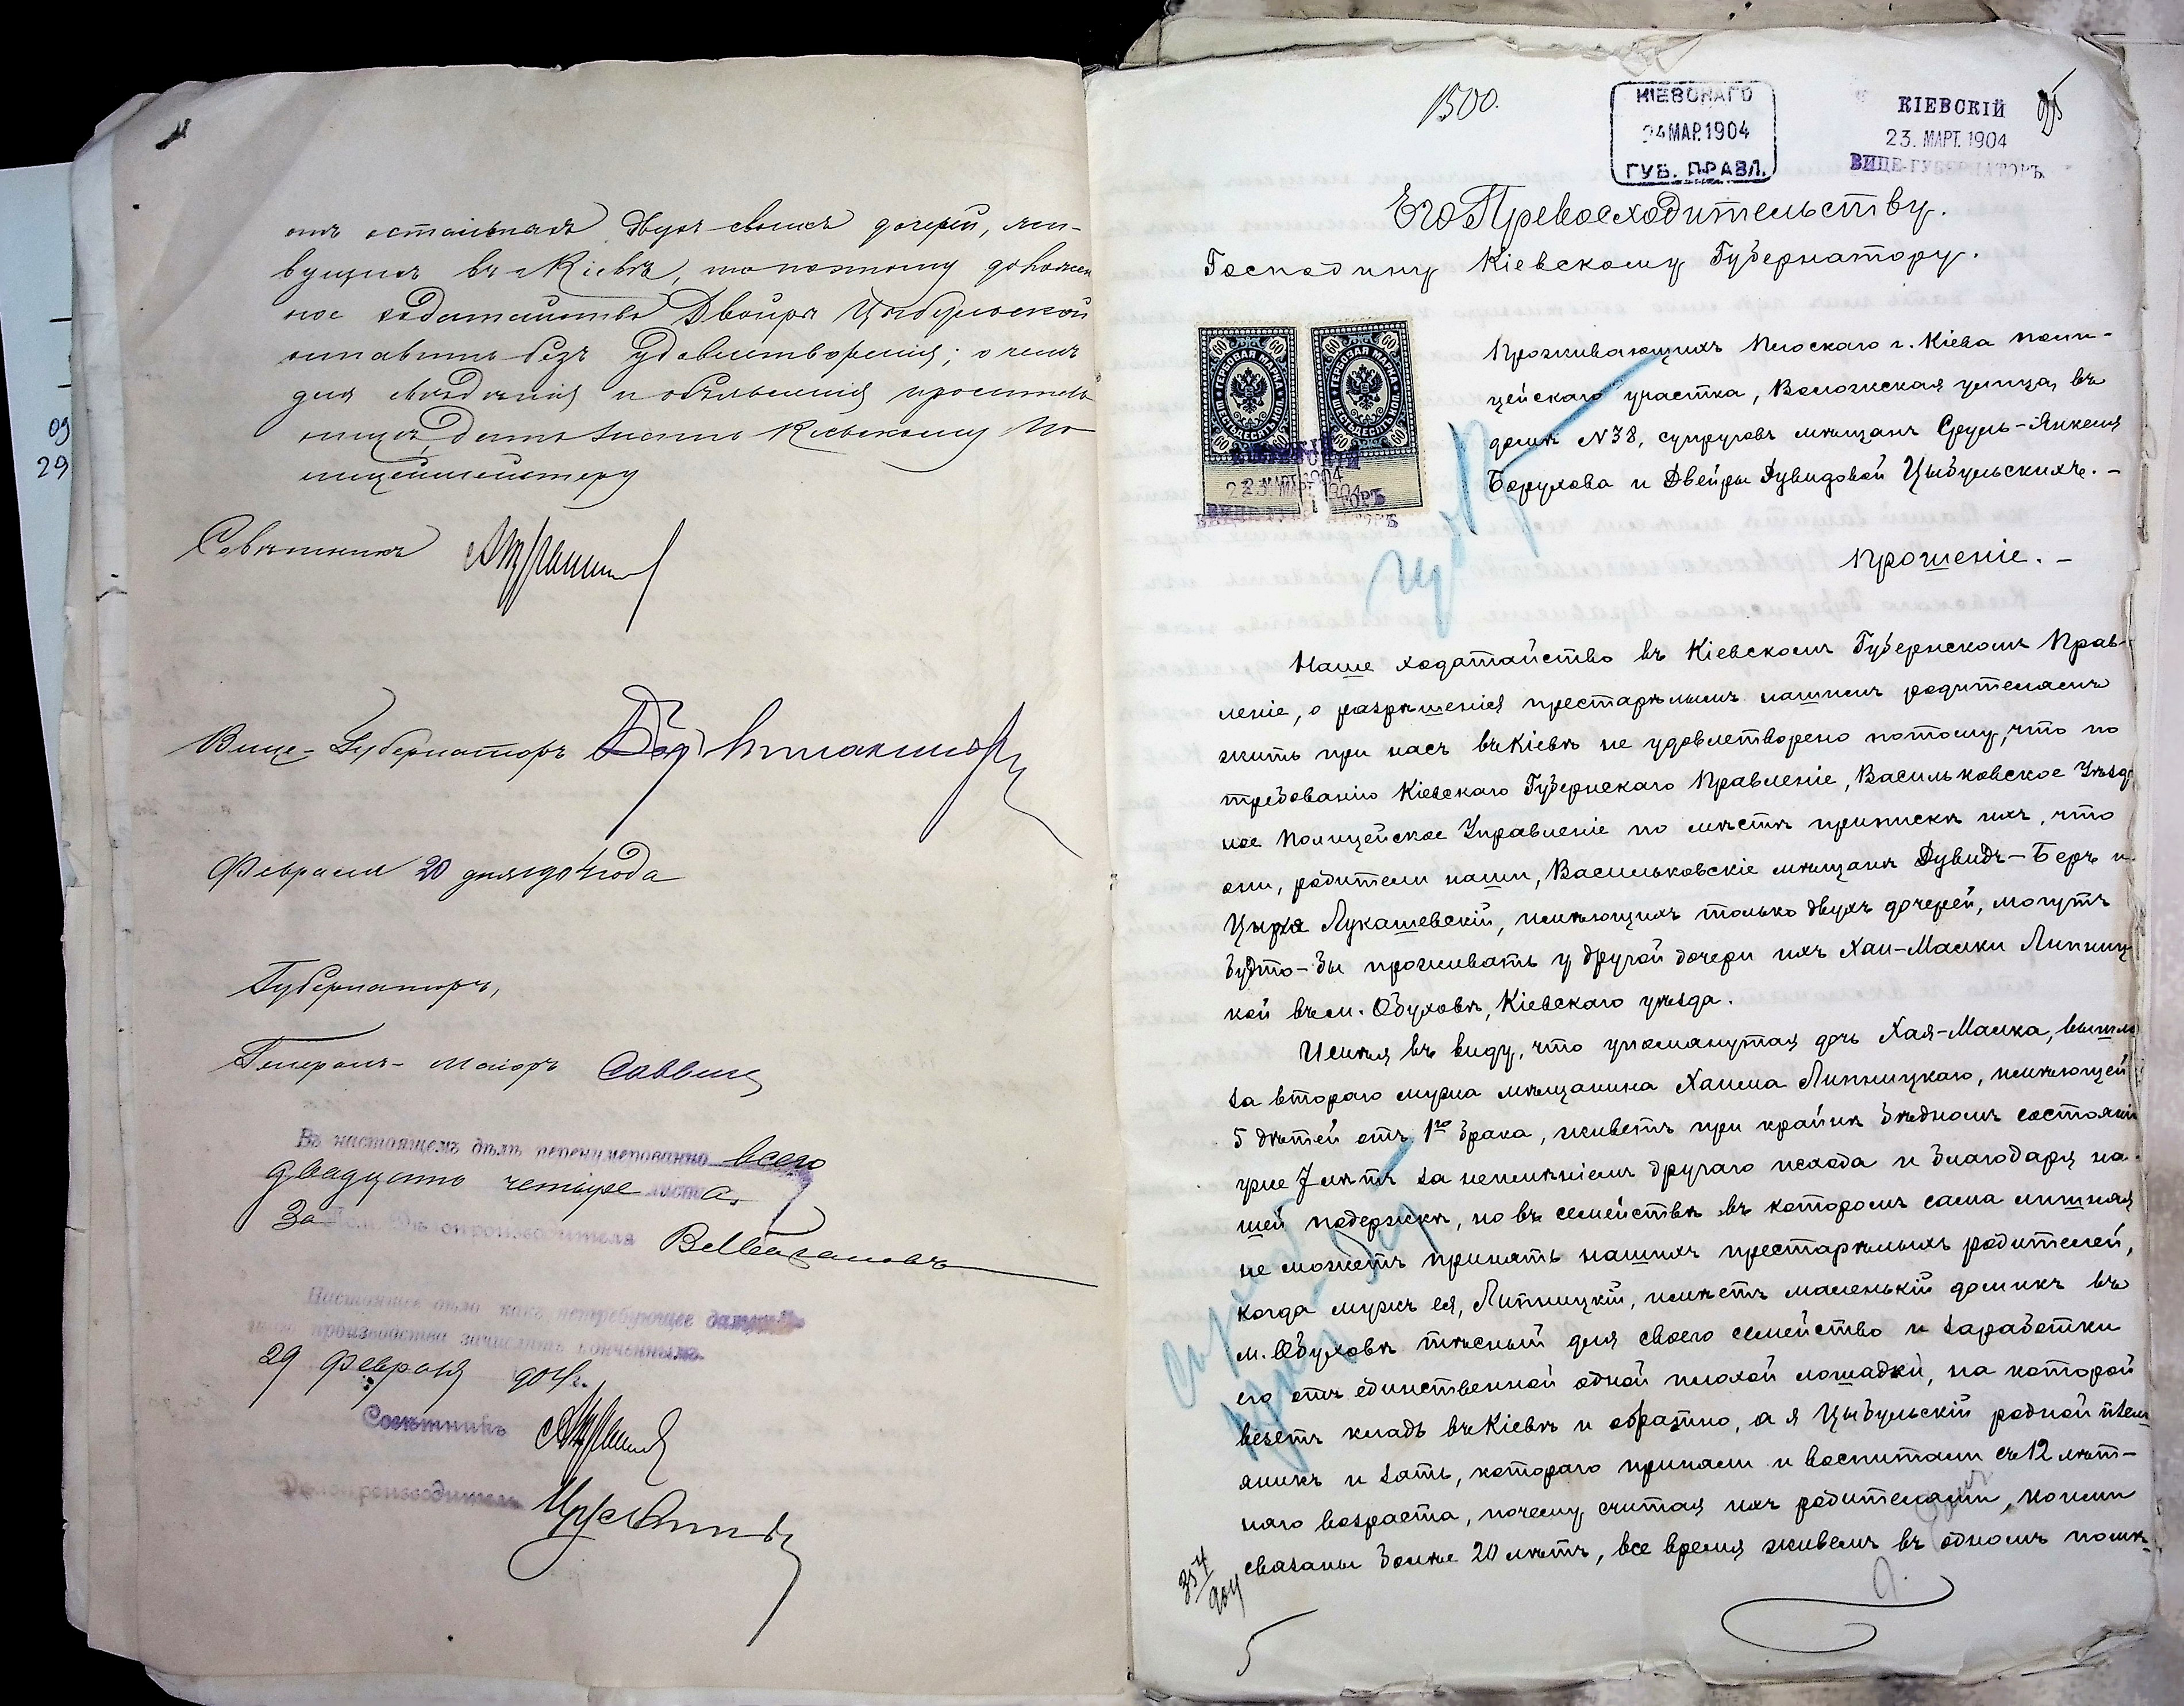 отъ остальныхъ двухъ своихъ дочерей, жи-
вущихъ въ г. Кіевѣ, то поэтому
ное ходатайство Двойры Цыбульской
оставить безъ удовлетворенія; о чемъ
для свѣдѣнія и объявленія проситель-
ницѣ, дать знать Кіевскому По-
лицеймейстеру
Совѣтникъ
Вице-Губернаторъ
Февраля 20 дня 1904 года
Губернаторъ,
Генералъ-маіоръ Саввичъ
Въ настоящемъ дѣлѣ перенумеровано всего
двадцать четыре листа.
За Пом. Дѣлопроизводителя
Настоящее дѣло какъ нетребующее дальнѣй-
шаго производства зачислить конченнымъ.
29 Февраля 904 г.
Совѣтникъ
Дѣлопроизводитель
1500.
КІЕВСКАГО
24 МАР. 1904
ГУБ. ПРАВЛ.
КІЕВСКІЙ
23. МАРТ. 1904
ВИЦЕ-ГУБЕРНАТОРЪ
Его Превосходительству.
Господину Кіевскому Губернатору.
60 60
ГЕРБОВАЯ МАРКА
ШЕСТЬДЕСЯТЪ КОП.
60 60
60 60
ГЕРБОВАЯ МАРКА
ШЕСТЬДЕСЯТЪ КОП.
60 60
Проживающихъ Плоскаго г. Кіева поли-
цейскаго участка, Волошская улица, въ
домѣ № 38, супруговъ мѣщанъ Сруль-Янкеля
Борухова и Двейры Дувидовой Цыбульскихъ. –
Прошеніе. –
Наше ходатайство въ Кіевскомъ Губернскомъ Прав-
леніе, о разрѣшенія престарѣлымъ нашимъ родителямъ
жить при насъ въ Кіевѣ не удовлетворено потому, что по
требованію Кіевскаго Губернскаго Правленіе, Васильковское Уѣзд
ное Полицейское Управленіе по мѣстѣ припискѣ ихъ, что
они, родители наши, Васильковскіе мѣщанѣ Дувидъ-Беръ и
Цирля Лукашевскій, имѣющихъ только двухъ дочерей, могутъ
будто-бы проживать у другой дочери ихъ Хаи-Малки Липниц
кой въ м. Обуховѣ, Кіевскаго уѣзда.
Имѣя въ виду, что упомянутая дочь Хая-Малка, вышла
за втораго мужа мѣщанина Хаима Липницкаго, имѣющей
5 дѣтей отъ 1го брака, живетъ при крайнѣ бѣдномъ состояніи
уже 7 лѣтъ за неимѣніемъ другаго исхода и благодаря на-
шей подержкѣ, но въ семействѣ въ которомъ сама лишная
не можетъ принять нашихъ престарѣлыхъ родителей,
когда мужъ ея, Липницкій, имѣетъ маленькій домикъ въ
м. Обуховѣ тѣсный для своего семейство и заработки
его отъ единственной одной плохой лошадки, на которой
везетъ кладь въ Кіевѣ и обратно, а я Цыбульскій родной плем
яникъ и зять, котораго приняли и воспитали съ 12 лѣт-
няго возраста, почему считая ихъ родителями, коими
связаны болѣе 20 лѣтъ, все время живемъ въ одномъ помѣ-